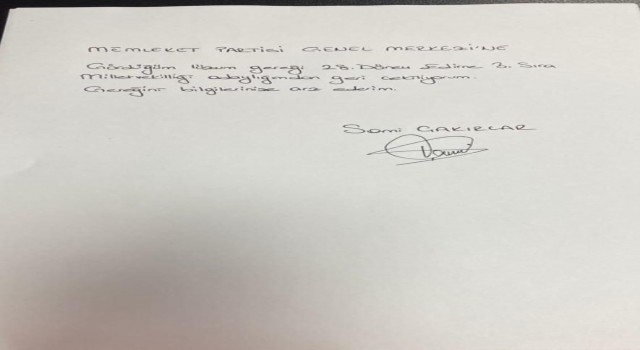 MEMLEKET PARTİSİ GENEL MERKEZİ'NE
Gördüğüm lüzum gereği 28. Dönem Edirne 3. Sıra
Milletvekilliği adaylığımdan geri çekiliyorum.
Gereğini bilgilerinize arz ederim.
Sami ÇAKIRLAR